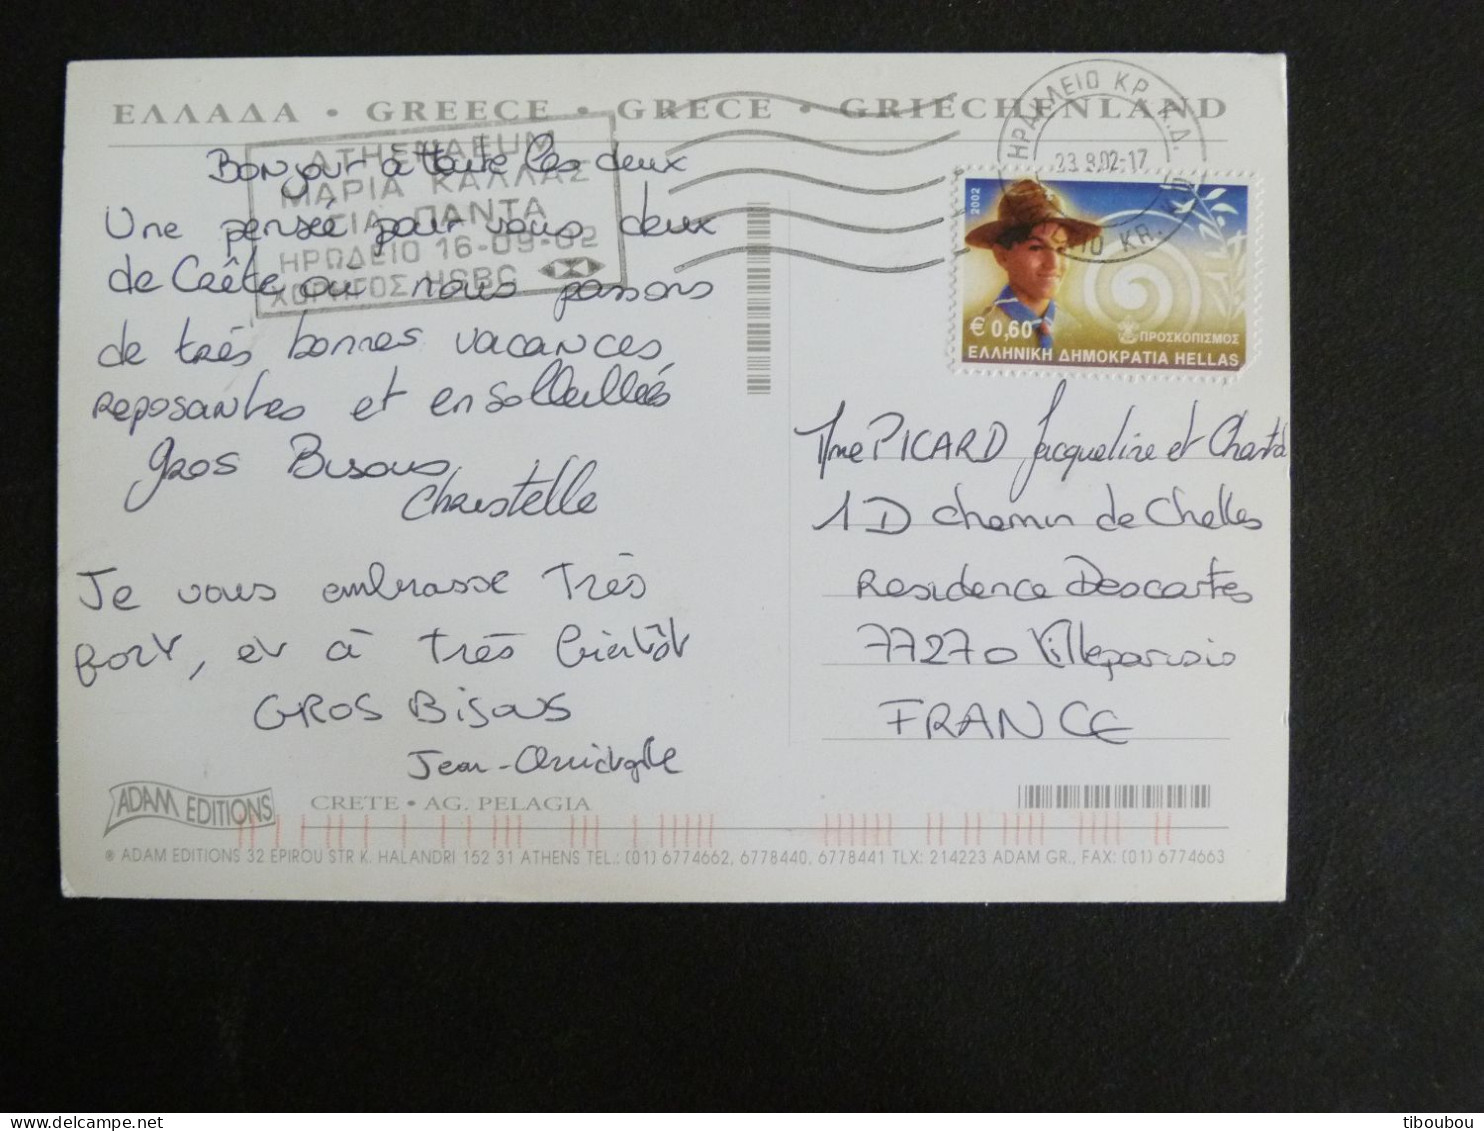 ΕΛΛΑΔΑ • GREECE • GRECE • GRIECHENLAND
ATHENAEUM
ΜΑΡΙΑ ΚΑΛΛΑΣ
ΓΙΑ ΠΑΝΤΑ
ΗΡΩΔΕΙΟ 16-09-02
ΧΟΡΗΓΟΣ HSBC
Bonjour à toute les deux
Une pensée pour vous deux
de Crête où nous passons
de très bonnes vacances
reposantes et ensolleillés
Gros Bisous
Christelle
Je vous embrasse Très
fort, et à très bientôt
GROS BISOUS
Jean-Christophe
ΗΡΑΚΛΕΙΟ ΚΡ. Κ.Δ.
23.8.02-17
2002
€ 0,60
ΠΡΟΣΚΟΠΙΣΜΟΣ
ΕΛΛΗΝΙΚΗ ΔΗΜΟΚΡΑΤΙΑ HELLAS
Mme PICARD Jacqueline et Chantal
1D chemin de Chelles
Residence Descartes
77270 Villeparisis
FRANCE
ADAM EDITIONS
CRETE • AG. PELAGIA
® ADAM EDITIONS 32 EPIROU STR K. HALANDRI 152 31 ATHENS TEL.: (01) 6774662, 6778440, 6778441 TLX: 214223 ADAM GR., FAX: (01) 6774663
tibоubou